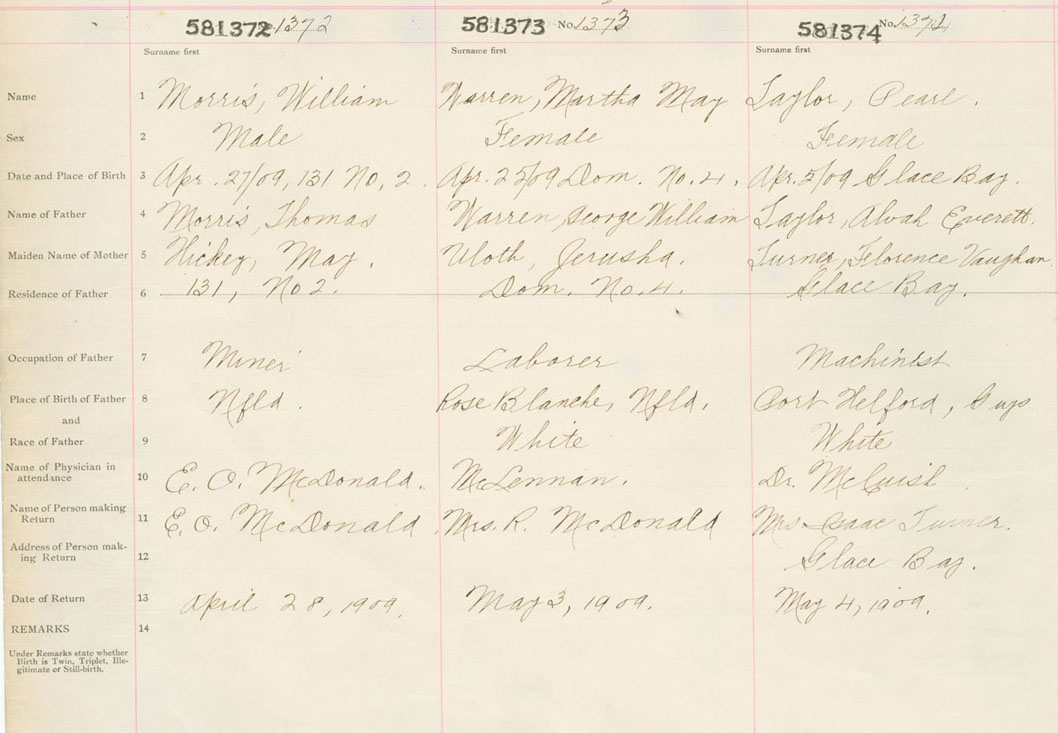 581372 1372 581373 No. 1373 581374 No. 1374
Surname first Surname first Surname first
Name 1 Morris, William Warren, Martha May Taylor, Pearl.
Sex 2 Male Female Female
Date and Place of Birth 3 Apr. 27/09, 131 No, 2. Apr. 25/09 Dom. No. 4. Apr. 5/09 Glace Bay.
Name of Father 4 Morris, Thomas Warren, George William Taylor, Alvah Everett.
Maiden Name of Mother 5 Hickey, May. Uloth, Jerusha. Turner, Florence Vaughan
Residence of Father 6 131, No 2. Dom. No. 4. Glace Bay.
Occupation of Father 7 Miner Laborer Machinist
Place of Birth of Father 8 Nfld. Rose Blanche, Nfld. Port Helford, Guys
and
Race of Father 9 White White
Name of Physician in
attendance 10 E. O. McDonald. McLennan. Dr. McCuish
Name of Person making
Return 11 E. O. McDonald Mrs. R. McDonald Mrs Isaac Turner.
Address of Person mak-
ing Return 12 Glace Bay.
Date of Return 13 April 28, 1909. May 3, 1909. May 4, 1909.
REMARKS 14
Under Remarks state whether
Birth is Twin, Triplet, Ille-
gitimate or Still-birth.